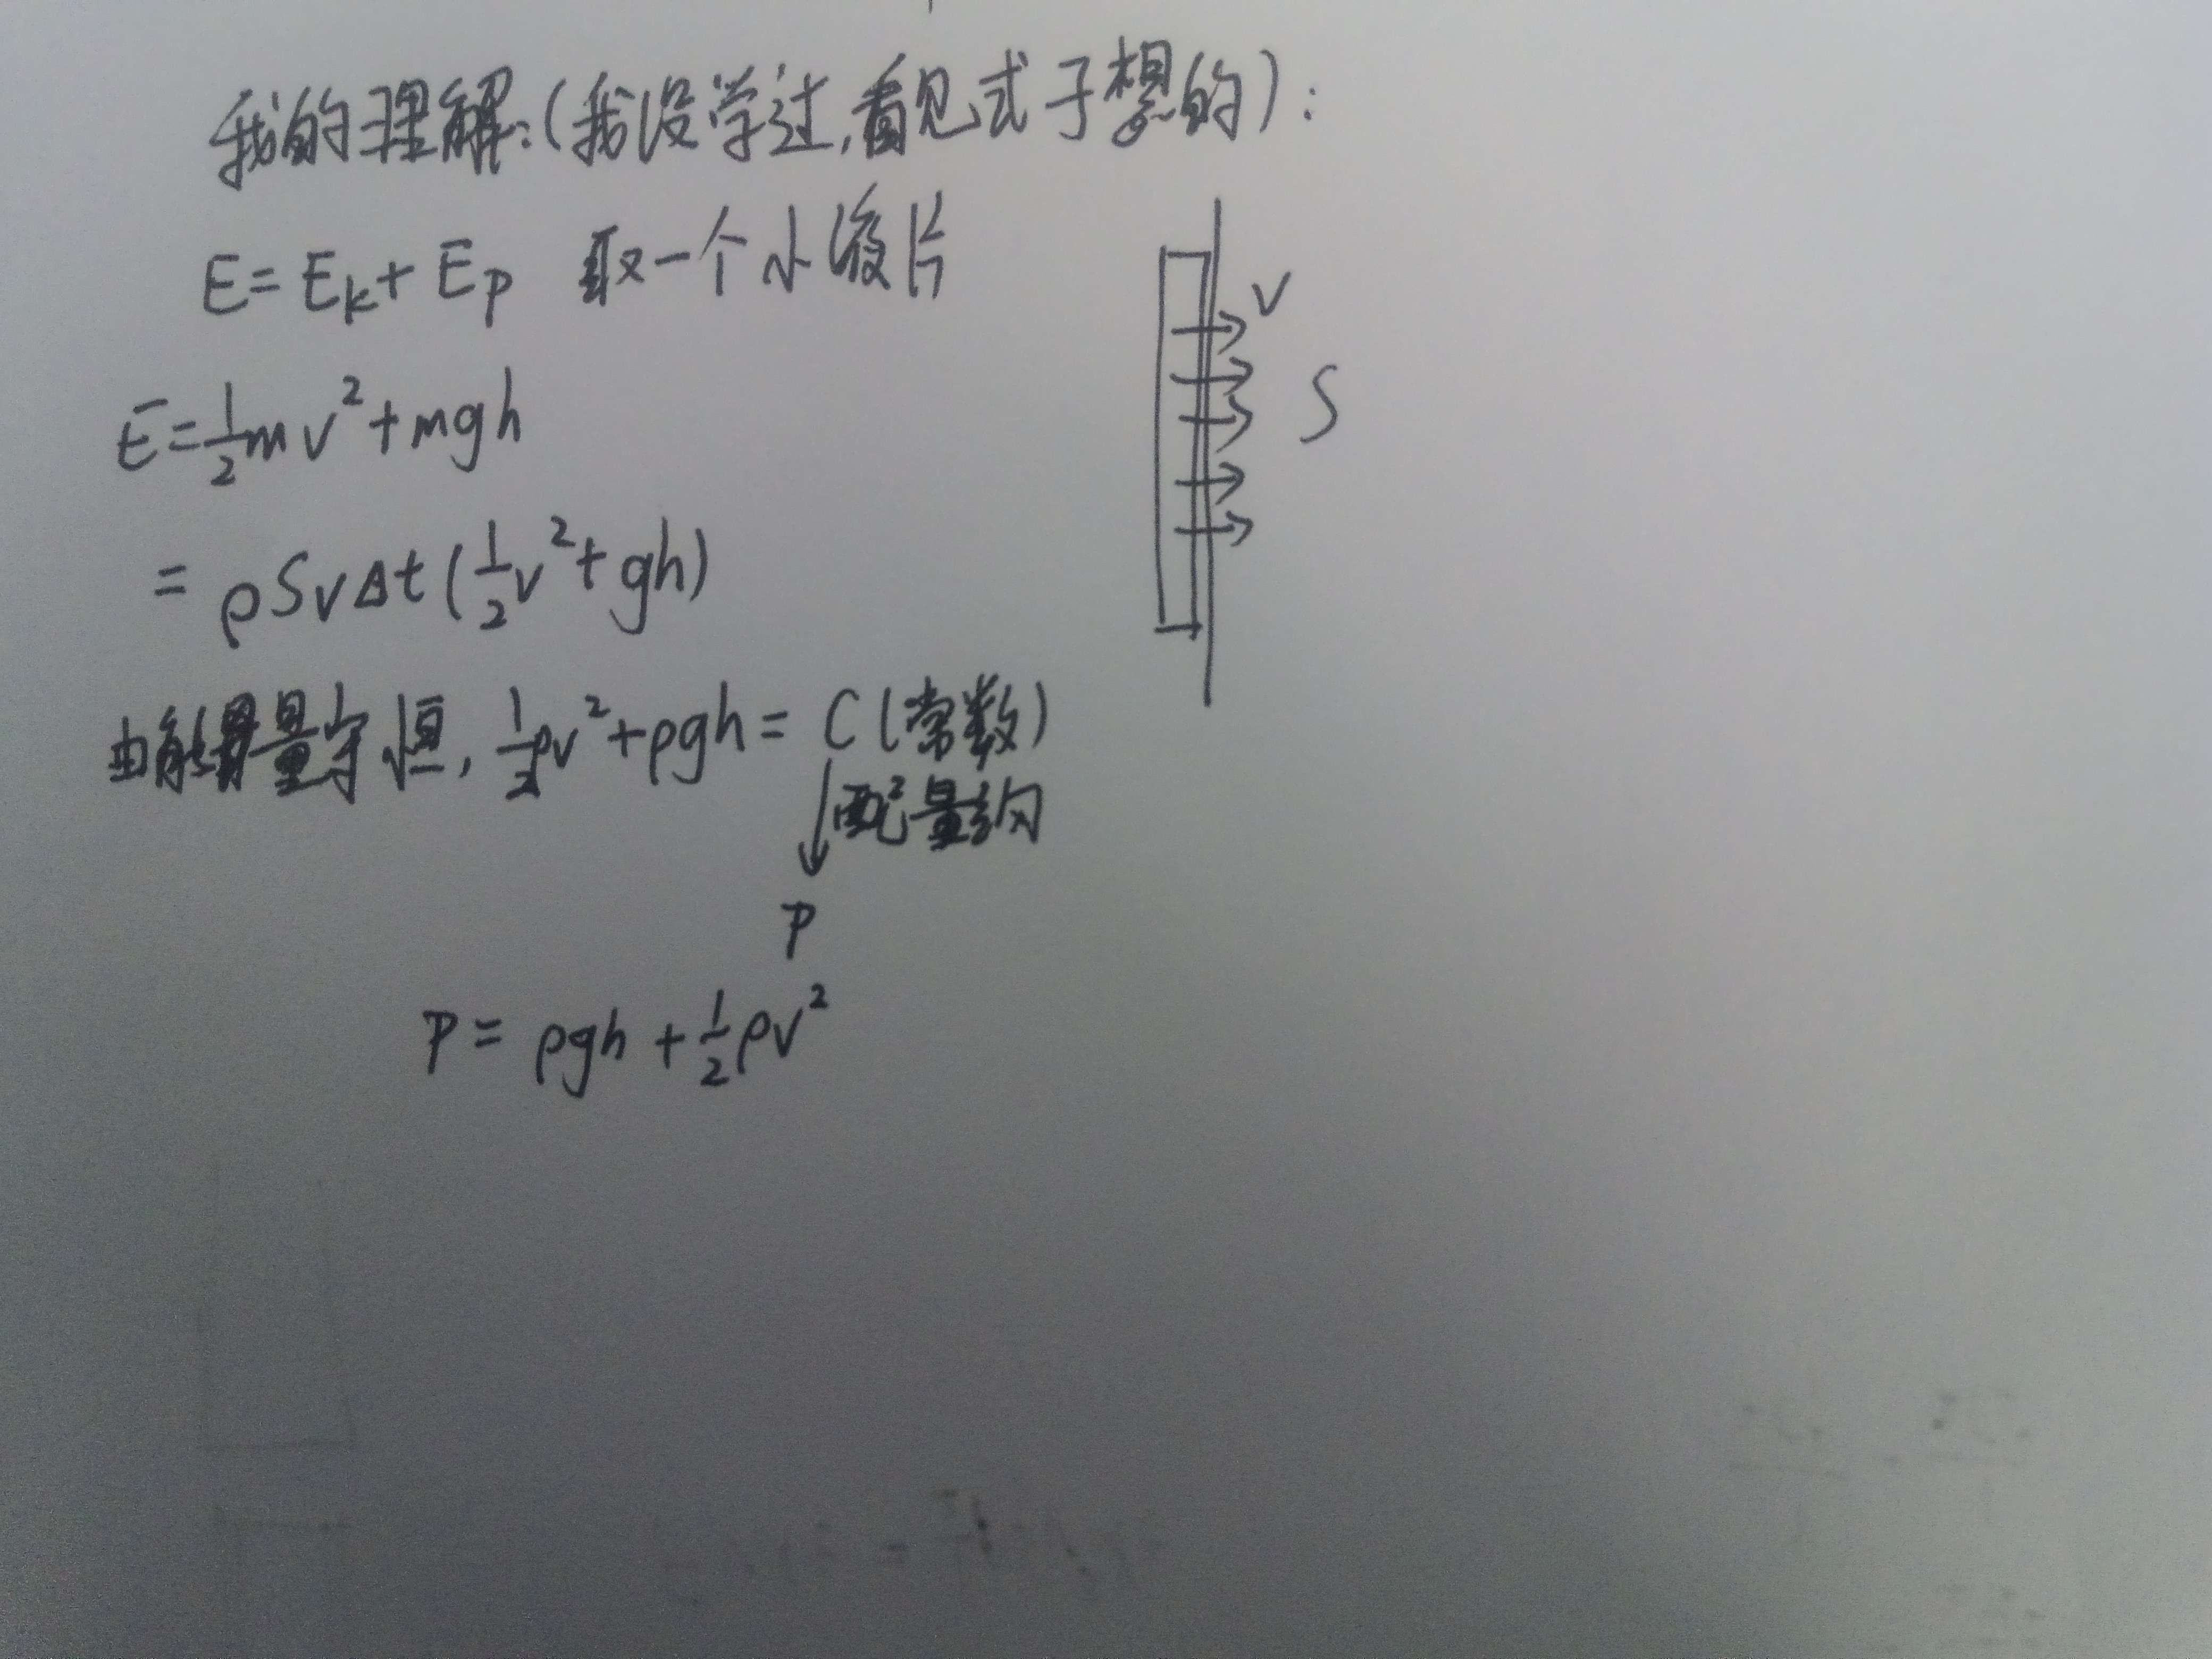 我的理解:(我没学过,看见式子想的):
E=Ek+Ep 取一个小液片
E=½mv²+mgh
=ρSvΔt(½v²+gh)
由能量守恒,½ρv²+ρgh=C(常数)
配量纲
P
P=ρgh+½ρv²
v
S